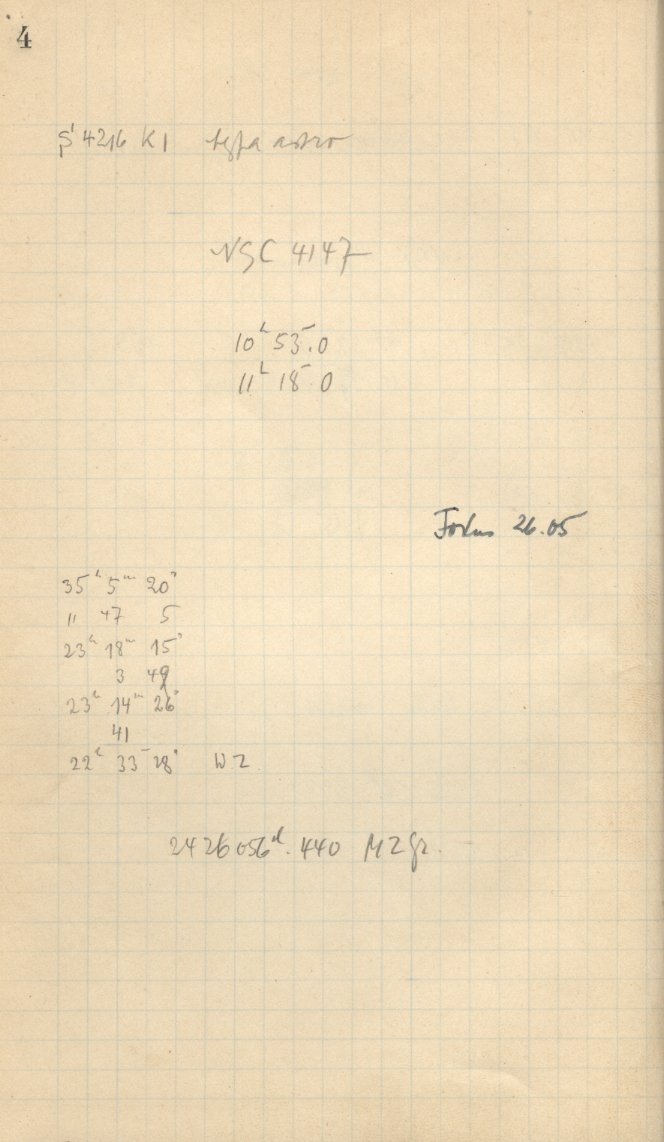 4
S 4216 K1 agfa astro
NGC 4147
10ʰ 53ᵐ.0
11ʰ 18ᵐ.0
Fokus 26.05
35ʰ 5ᵐ 20ˢ
11 47 5
23ʰ 18ᵐ 15ˢ
3 49
23ʰ 14ᵐ 26ˢ
41
22ʰ 33ᵐ 28ˢ WZ
2426056ᵈ.440 MZGr.